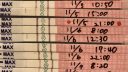 MAX 11/5 10:50
MAX 11/5 15:00
MAX 11/5 21:00
MAX 11/6 8:00
MAX 11/6 12:30
MAX 11/6 19:40
MAX 11/6 22:00
MAX 11/7 8:20